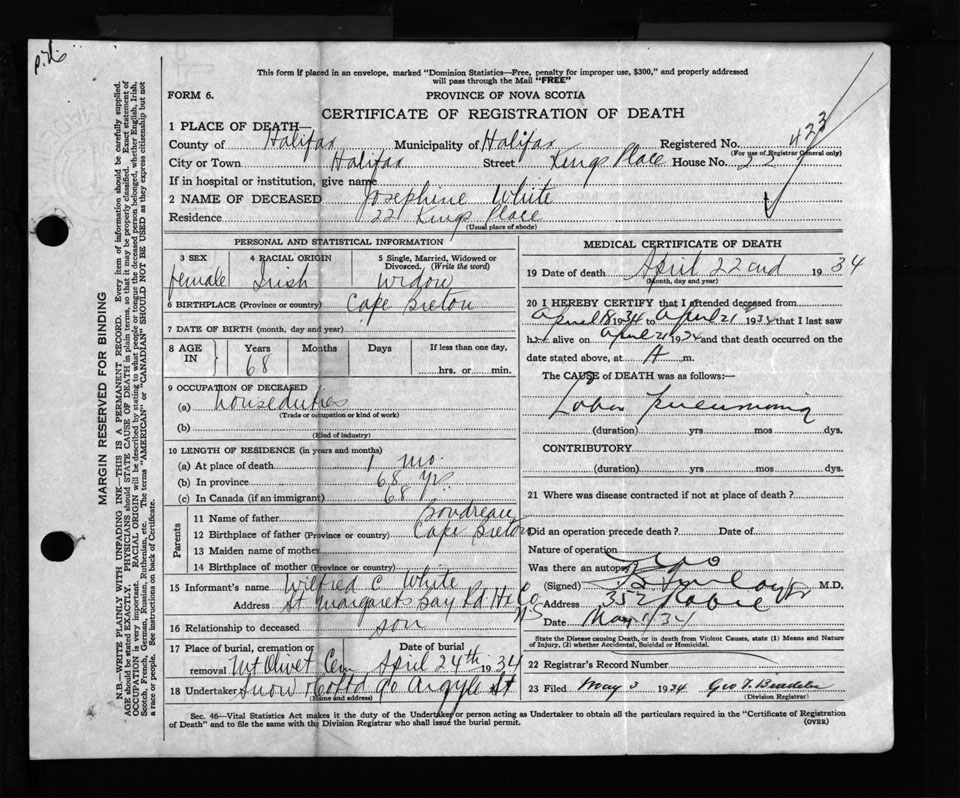 This form if placed in an envelope, marked "Dominion Statistics—Free, penalty for improper use, $300," and properly addressed
will pass through the Mail "FREE"
FORM 6.
PROVINCE OF NOVA SCOTIA
CERTIFICATE OF REGISTRATION OF DEATH
1 PLACE OF DEATH—
County of Halifax Municipality of Halifax Registered No. 423
(For use of Registrar General only)
City or Town Halifax Street Kings Place House No. 22
If in hospital or institution, give name
2 NAME OF DECEASED Josephine White
Residence 22 Kings Place
(Usual place of abode)
PERSONAL AND STATISTICAL INFORMATION
3 SEX 4 RACIAL ORIGIN 5 Single, Married, Widowed or
Divorced. (Write the word)
female Irish Widow
6 BIRTHPLACE (Province or country) Cape Breton
7 DATE OF BIRTH (month, day and year)
8 AGE IN Years Months Days If less than one day,
68 hrs. or min.
9 OCCUPATION OF DECEASED
(a) houseduties
(Trade or occupation or kind of work)
(b)
(Kind of industry)
10 LENGTH OF RESIDENCE (in years and months)
(a) At place of death 1 mo.
(b) In province 68 yr.
(c) In Canada (if an immigrant) 68
Parents
11 Name of father Boudreau
12 Birthplace of father (Province or country) Cape Breton
13 Maiden name of mother
14 Birthplace of mother (Province or country)
15 Informant's name Wilfred C. White
Address St Margarets Bay Rd. Hx Co NS
16 Relationship to deceased son
17 Place of burial, cremation or Date of burial
removal Mt Olivet Cem April 24th 1934
18 Undertaker Snow & Co Ltd 90 Argyle St
(Name and address)
MEDICAL CERTIFICATE OF DEATH
19 Date of death April 22nd 1934
(Month, day and year)
20 I HEREBY CERTIFY that I attended deceased from
April 18 1934 to April 21 1934 that I last saw
her alive on April 21 1934 and that death occurred on the
date stated above, at A m.
The CAUSE of DEATH was as follows:—
Lobar Pneumonia
(duration) yrs mos dys.
CONTRIBUTORY
(duration) yrs mos dys.
21 Where was disease contracted if not at place of death?
Did an operation precede death? Date of
Nature of operation
Was there an autopsy no
(Signed) M.D.
Address 352 Robie
Date May 1/34
State the Disease causing Death, or in death from Violent Causes, state (1) Means and Nature
of Injury, (2) whether Accidental, Suicidal or Homicidal.
22 Registrar's Record Number
23 Filed May 3 1934 Geo
(Division Registrar)
Sec. 46—Vital Statistics Act makes it the duty of the Undertaker or person acting as Undertaker to obtain all the particulars required in the "Certificate of Registration
of Death" and to file the same with the Division Registrar who shall issue the burial permit.
(OVER)
MARGIN RESERVED FOR BINDING
N.B.—WRITE PLAINLY WITH UNFADING INK—THIS IS A PERMANENT RECORD. Every item of information should be carefully supplied.
AGE should be stated EXACTLY. PHYSICIANS should STATE CAUSE OF DEATH in plain terms, so that it may be properly classified. Exact statement of
OCCUPATION is very important. RACIAL ORIGIN will be described by stating to what people or tongue the deceased person belonged, whether English, Irish,
Scotch, French, German, Russian, Ruthenian, etc. The terms "AMERICAN" or "CANADIAN" SHOULD NOT BE USED as they express citizenship but not
a race or people. See instructions on back of Certificate.